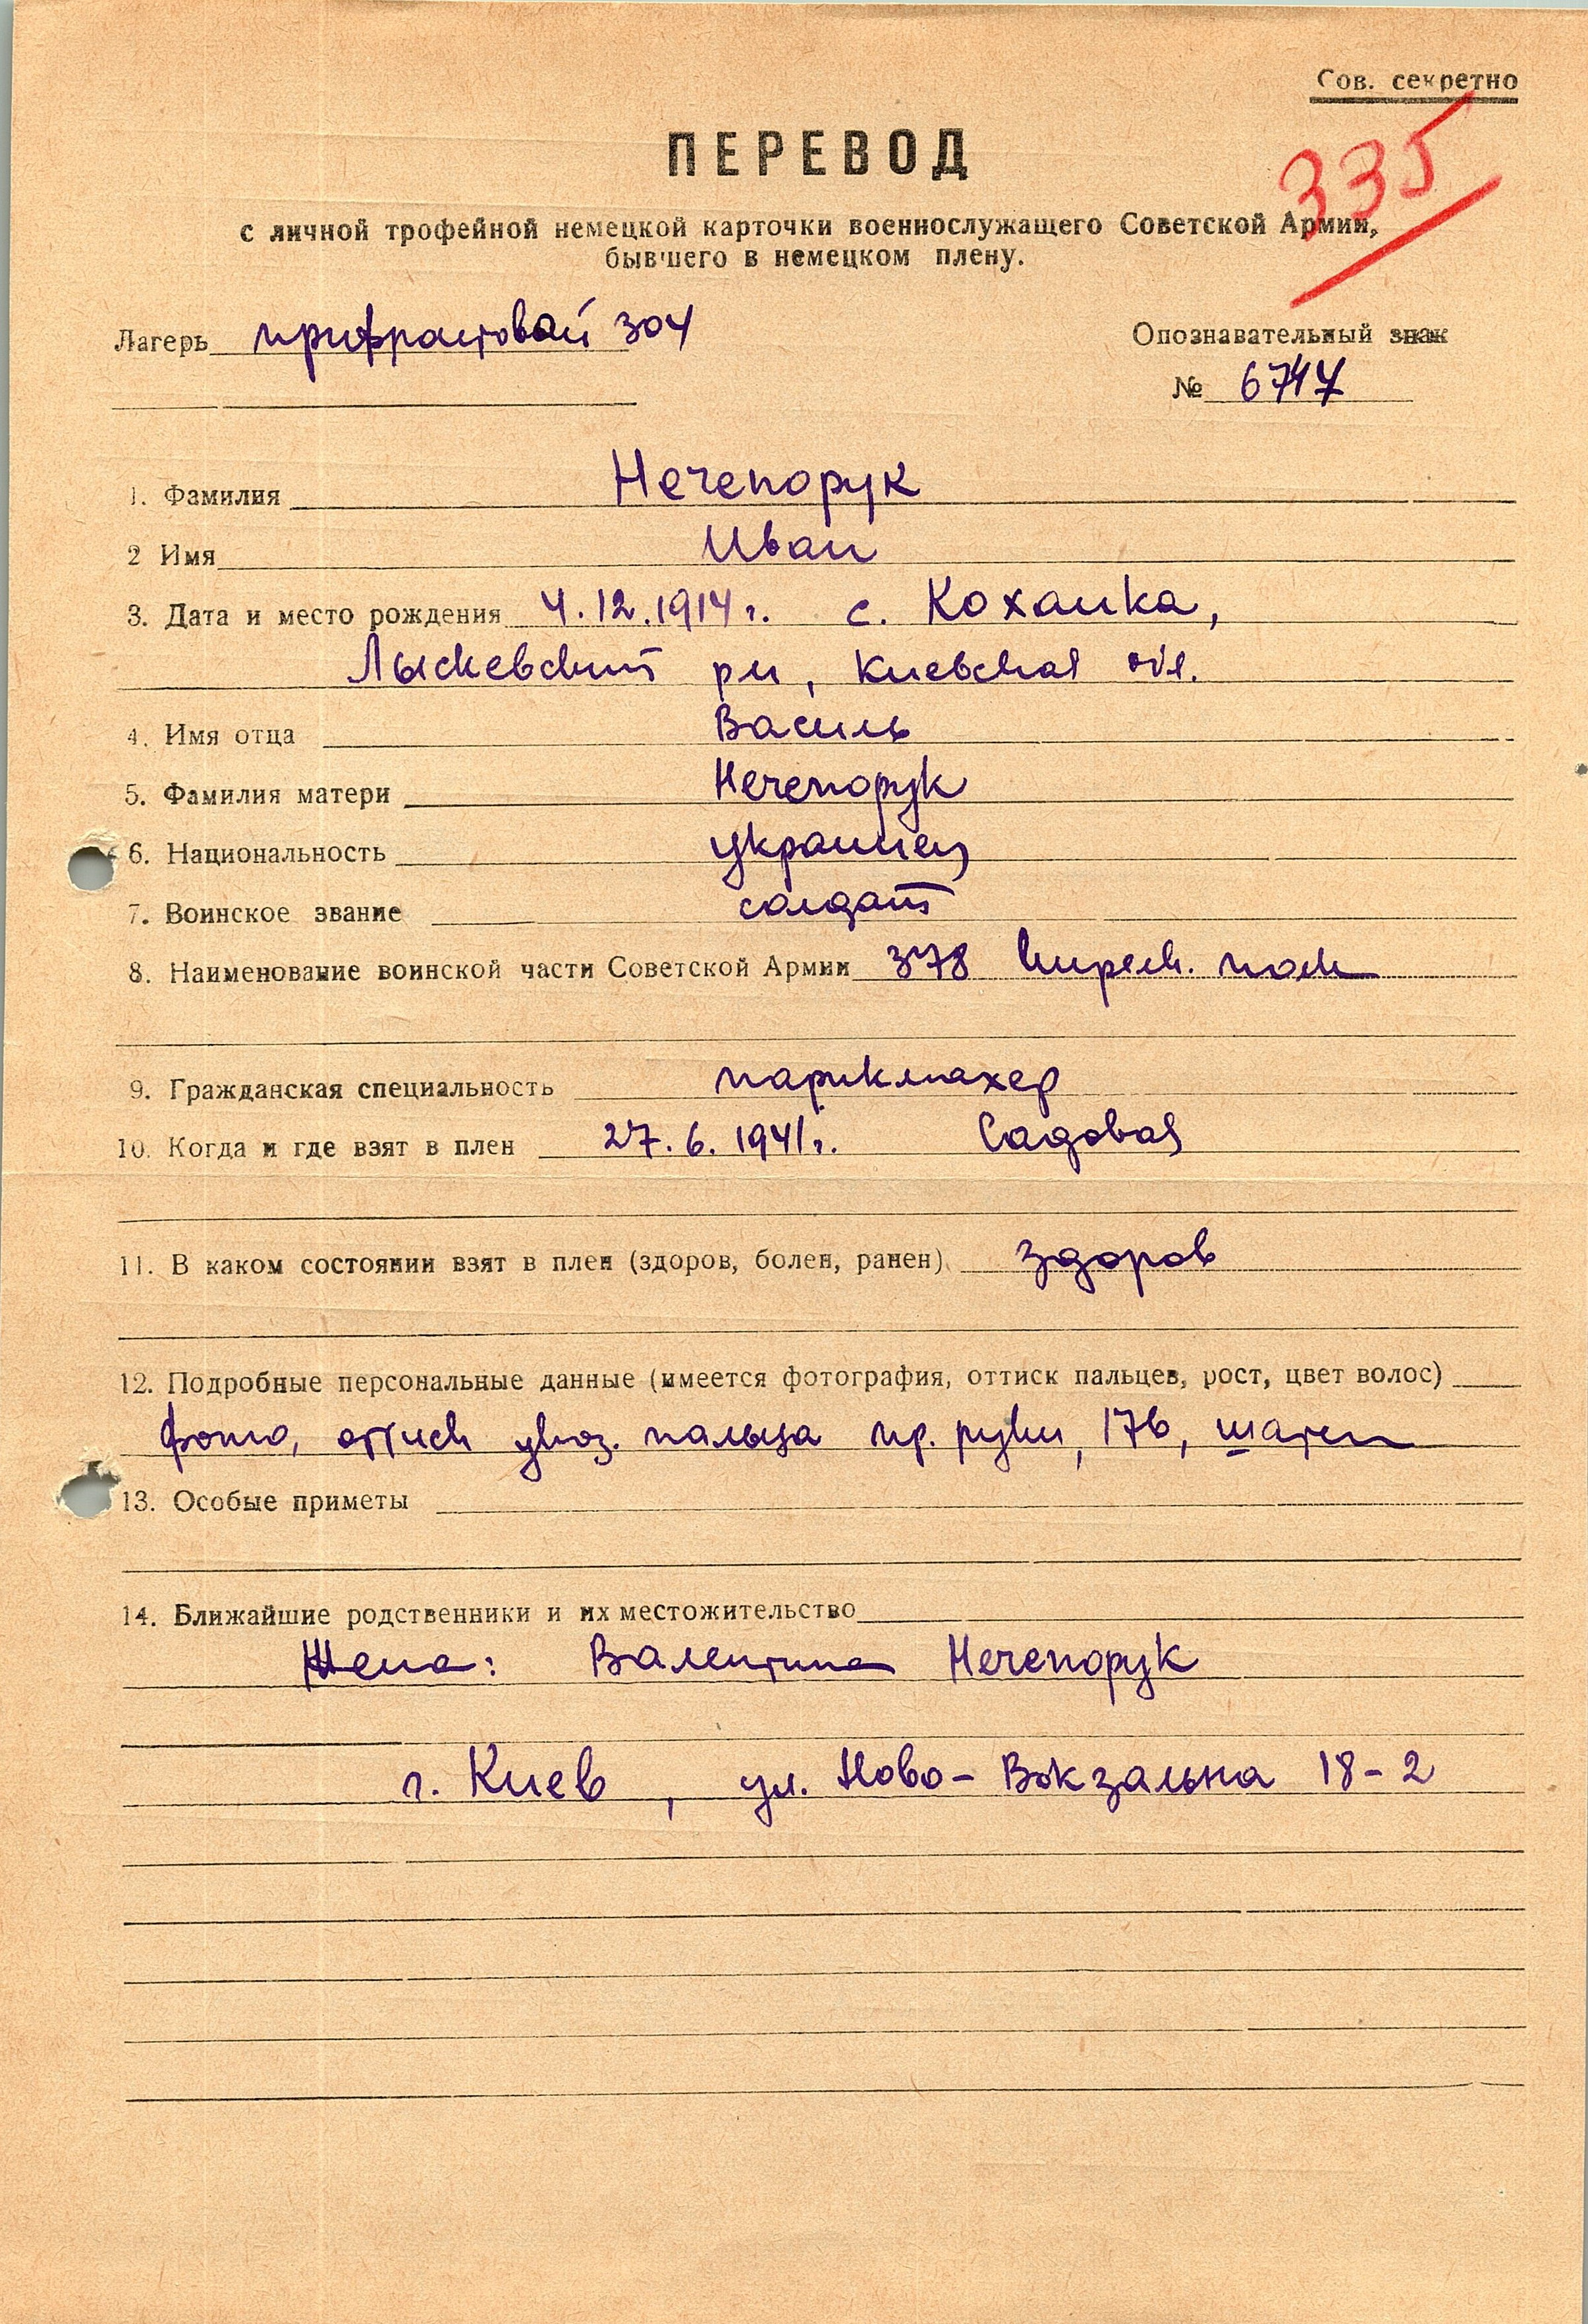 Сов. секретно
335
ПЕРЕВОД
с личной трофейной немецкой карточки военнослужащего Советской Армии,
бывшего в немецком плену.
Лагерь 304
Опознавательный знак
№
1. Фамилия Нечепорук
2 Имя Иван
3. Дата и место рождения 4.12.1914 г. с. Коханка,
Лыскевский рн, Киевская обл.
4. Имя отца Василь
5. Фамилия матери Нечепорук
6. Национальность украинец
7. Воинское звание солдат
8. Наименование воинской части Советской Армии 378 полк
9. Гражданская специальность парикмахер
10. Когда и где взят в плен 27.6.1941 г. Садовая
11. В каком состоянии взят в плен (здоров, болен, ранен) здоров
12. Подробные персональные данные (имеется фотография, оттиск пальцев, рост, цвет волос)
фото, оттиск указ. пальца пр. руки, 176, шатен
13. Особые приметы
14. Ближайшие родственники и их местожительство
Жена: Валентина Нечепорук
г. Киев, ул. Ново-Вокзальна 18-2